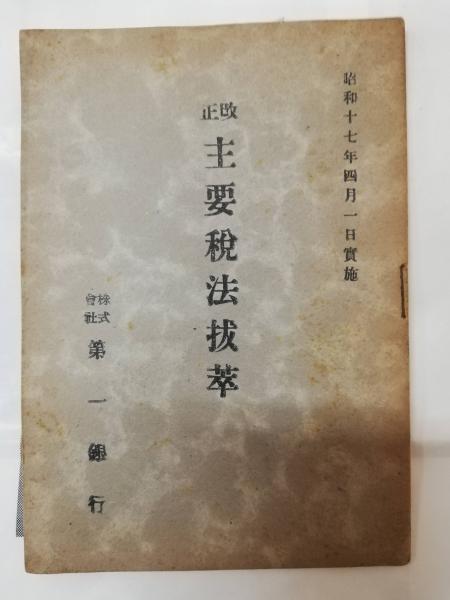 昭和十七年四月一日實施
改正
主要稅法拔萃
株式會社
第一銀行